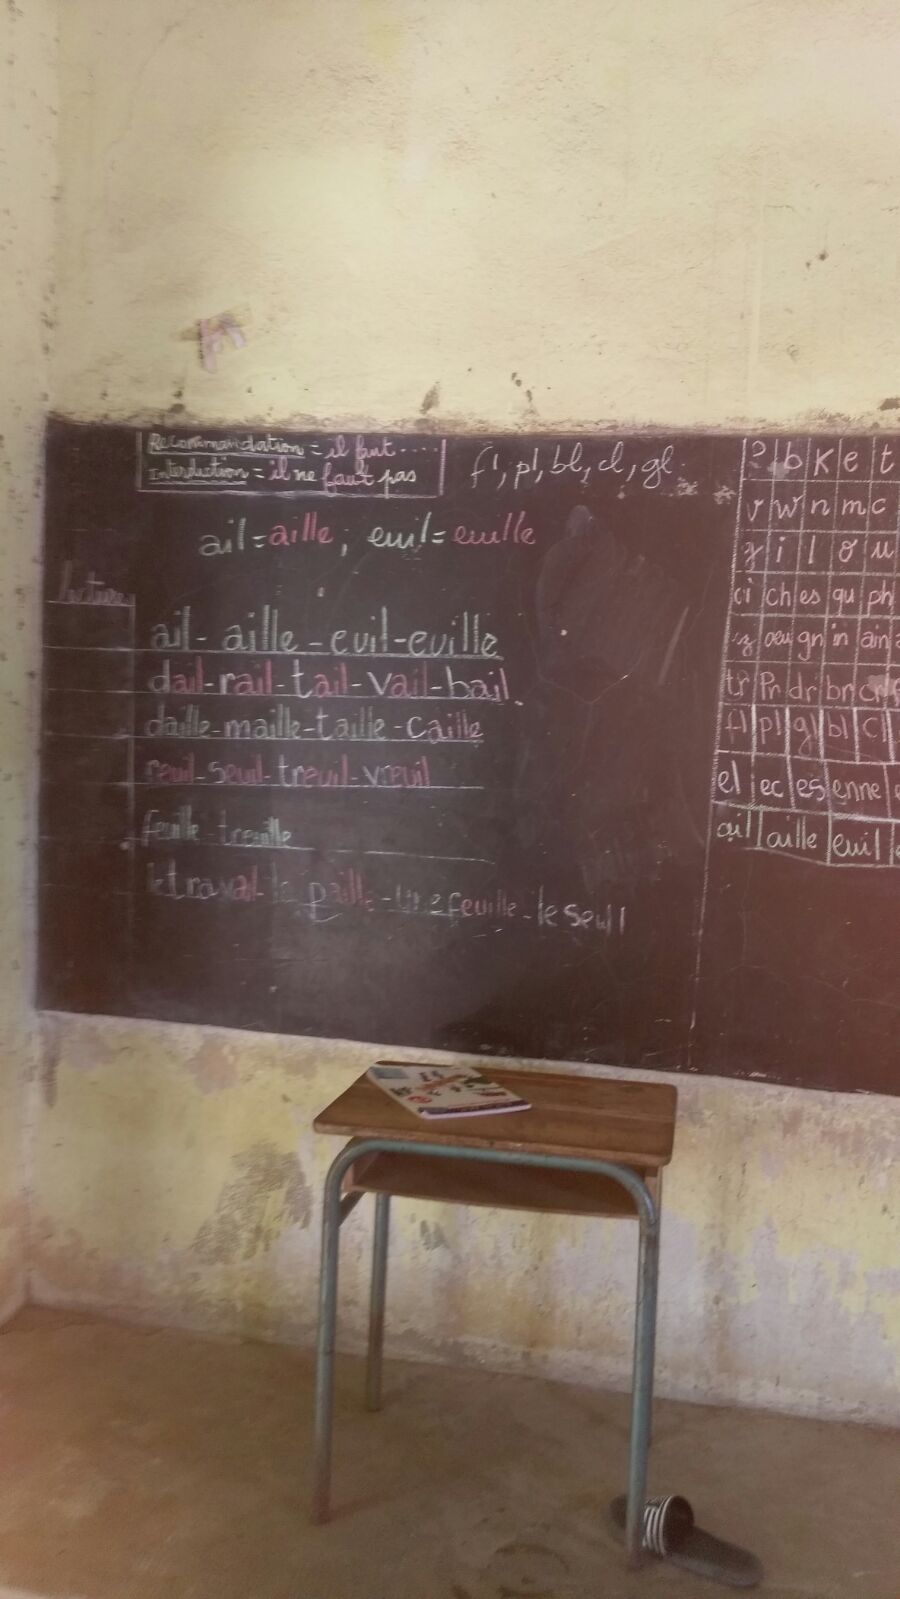 Recommandation = il faut ....
Interdiction = il ne faut pas
fl, pl, bl, cl, gl
ail = aille ; euil = euille
lecture
ail - aille - euil - euille
dail - rail - tail - vail - bail
daille - maille - taille - caille
reuil - seuil - treuil - vreuil
feuille - treuille
le travail - la paille - une feuille - le seuil
p b k e t
v w n m c
z i l o u
ci ch es qu ph
ez oeu gn in ain
tr pr dr br cr
fl pl gl bl cl
el ec es enne
ail aille euil